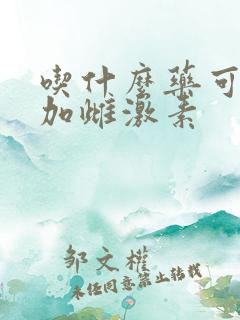 喫什麼藥可
加雌激素
邹文權
未经同意禁止转载